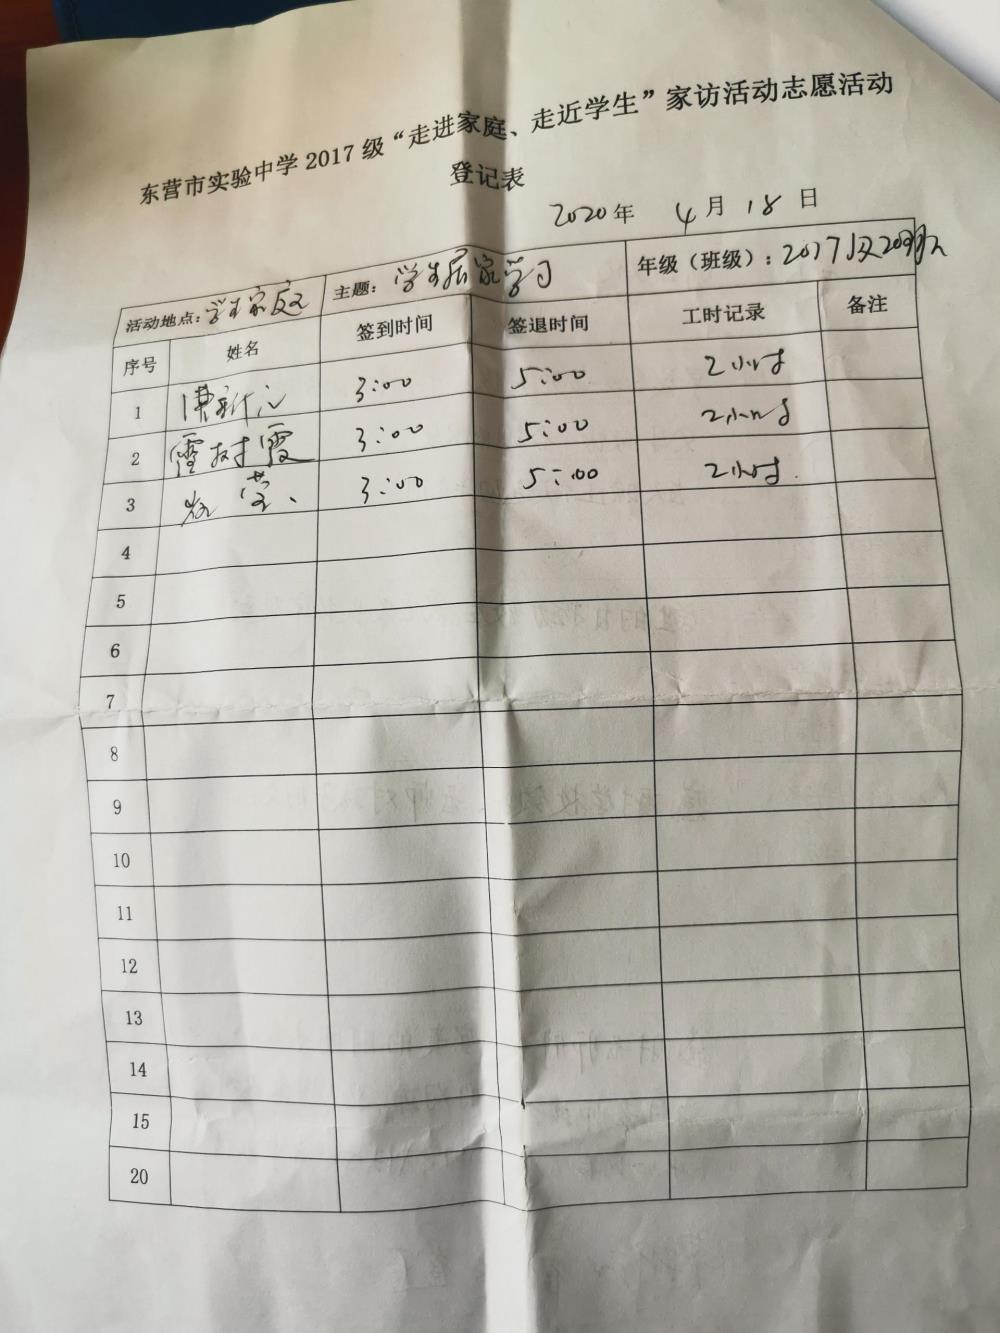 东营市实验中学2017级“走进家庭、走近学生”家访活动志愿活动
登记表
2020年 4月18日
活动地点：学生家庭 主题：学生居家学习 年级（班级）：2017级
序号 姓名 签到时间 签退时间 工时记录 备注
1 3:00 5:00 2小时
2 霍树霞 3:00 5:00 2小时
3 3:00 5:00 2小时.
4
5
6
7
8
9
10
11
12
13
14
15
20